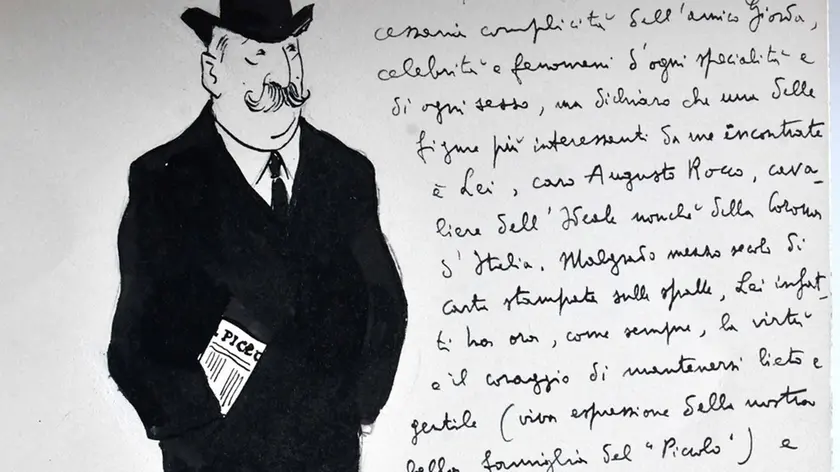 cessaria complicità dell'amico Giorda,
celebrità e fenomeni d'ogni specialità e
di ogni sesso, ma dichiaro che una delle
figure più interessanti da me incontrate
è Lei, caro Augusto Rocco, cava-
liere dell'Ideale nonché della Corona
d'Italia. Malgrado mezzo secolo di
carta stampata sulle spalle, Lei infat-
ti ha ora, come sempre, la virtù
e il coraggio di mantenersi lieto e
gentile (viva espressione della nostra
bella famiglia del "Piccolo") e
PICC